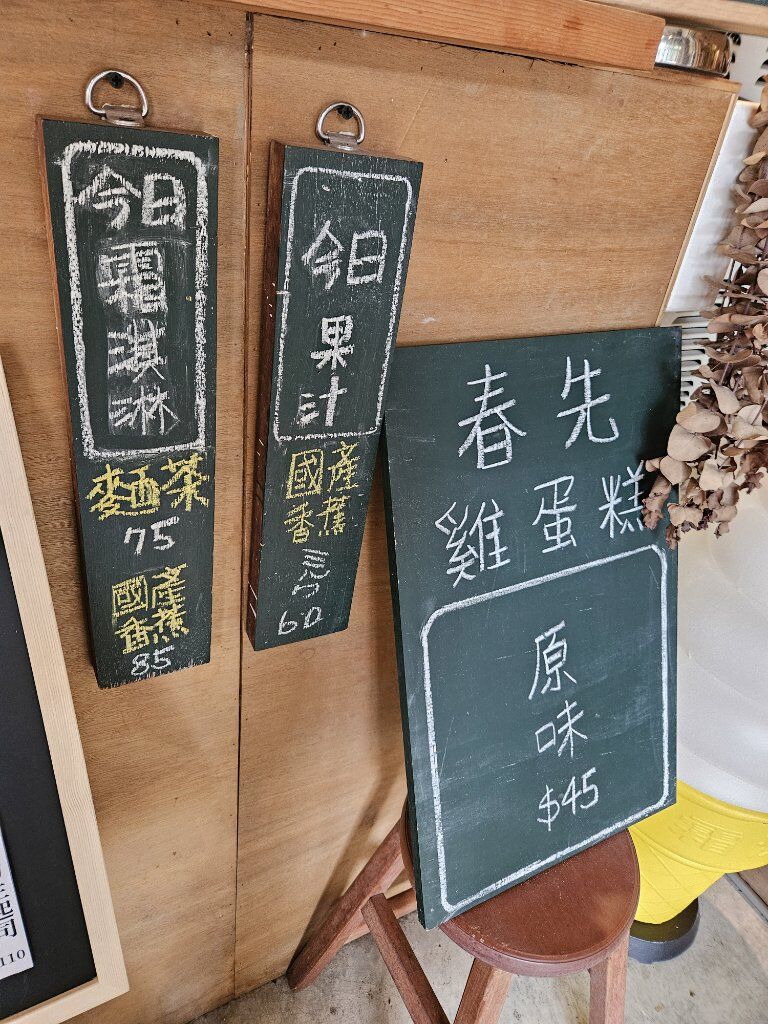 今日
霜
淇
淋
麵茶
75
國產
香蕉
85
今日
果
汁
國產
香蕉
60
春先
雞蛋糕
原
味
$45
起司
110